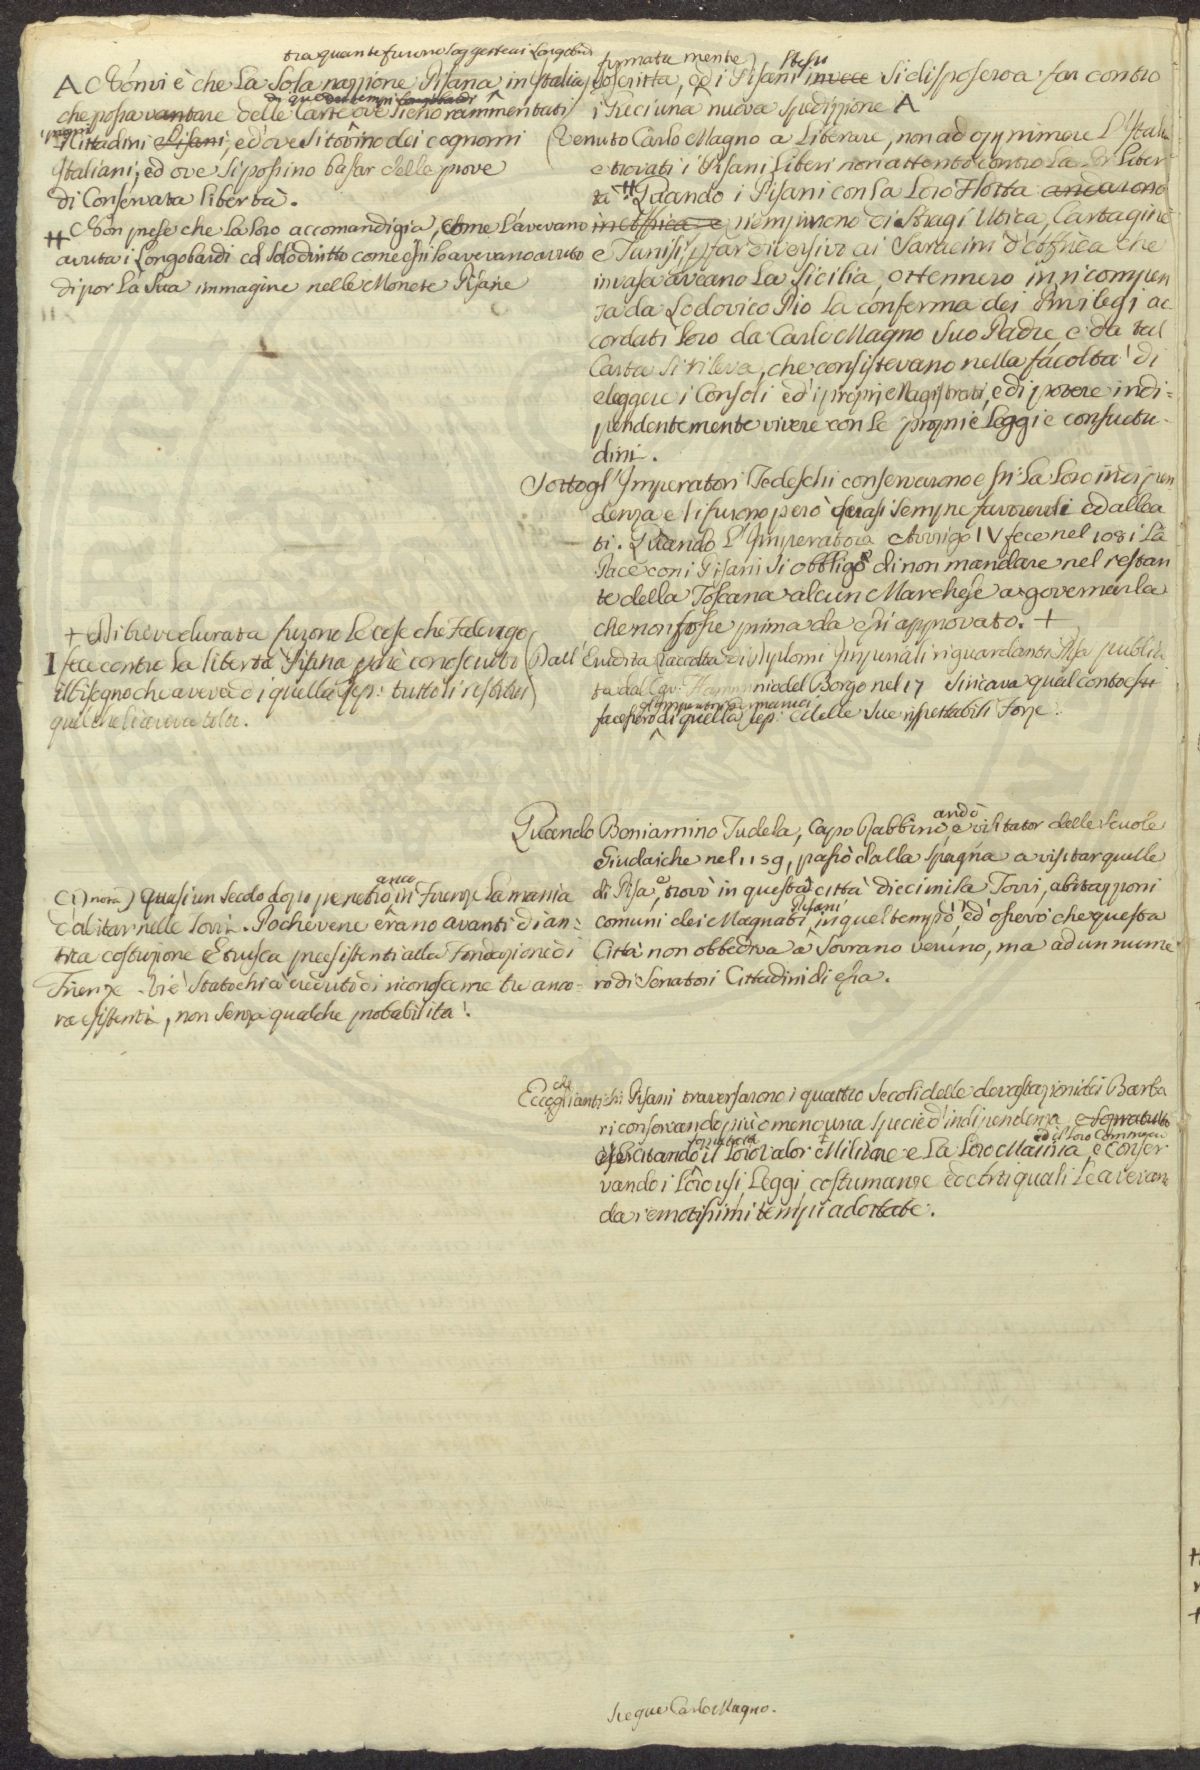 tra quante furono soggette ai Longobardi
A Non vi è che la sola nazzione Pisana in Italia,
che possa vantare delle Carte ove sieno rammentati
di quei tempi Longobardi
propri
Cittadini Pisani, ed ove si trovino dei cognomi
Italiani, ed ove si possino basar delle prove
di Conservata libertà.
# Non pose che la loro accomandigia, come l'avevano
avuta i Longobardi ed il solo diritto come essi lo avevano avuto
di por la sua immagine nelle Monete Pisane
+ Di breve durata furono le cose che Federigo
I fece contro la libertà Pisana perchè conosciuto
il bisogno che aveva di quella Rep: tutto li restituì
quel che li aveva tolto.
(1) nota) Quasi un secolo dopo penetrò anco in Firenze la mania
d'abitar nelle Torri. Poche ve ne erano avanti di an-
tica costruzione Etrusca preesistenti alla Fondazione di
Firenze. Vi è stato chi à creduto di riconoscerne tre anco-
ra esistenti, non senza qualche probabilità.
firmata mente stessi
soscritta, ed i Pisani invece si disposero a far contro
i Greci una nuova spedizzione A
Venuto Carlo Magno a liberare, non ad opprimere l'Italia
e trovati i Pisani liberi non attentò contro la lor liber-
tà # Quando i Pisani con la loro Flotta andarono
in Affrica e riempirono di stragi Utica, Cartagine
e Tunisi, p far diversivo ai Saracini d'Affrica che
invasa aveano la Sicilia, ottennero in ricompen
sa da Lodovico Pio la conferma dei Privilegj ac-
cordati loro da Carlo Magno suo Padre, e da tal
Carta si rileva, che consistevano nella facoltà di
eleggere i Consoli ed i proprj Magistrati, e di potere indi-
pendentemente vivere con le proprie Leggi e consuetu-
dini.
Sotto gl'Imperatori Tedeschi conservarono essi la loro indipen
denza e li furono però quasi sempre favorevoli ed allea
ti. Quando l'Imperatore Arrigo IV fece nel 1081 la
Pace con i Pisani si obbligò di non mandare nel restan
te della Toscana alcun Marchese a governarla
che non fosse prima da essi approvato. +
Dall'Erudita raccolta di Diplomi Imperiali riguardanti Pisa publica
ta dal Cav: Flamminio del Borgo nel 17 si ricava qual conto essi
gl'Imperatori Germanici
facessero di quella Rep: e delle sue rispettabili Forze.
Quando Boniamino Tudela, Capo Rabbino, andò e visitator delle scuole
Giudaiche nel 1159, passò dalla Spagna a visitar quelle
di Pisa, trovò in questa città diecimila Torri, abitazzioni
comuni dei Magnati Pisani in quel tempo, ed osservò che questa
Città non obbediva a Sovrano veruno, ma ad un nume
ro di Senatori Cittadini di essa.
Ecco che gli antichi Pisani traversarono i quattro secoli delle devastazioni dei Barba
ri conservando più o meno una specie d'indipendenza, e sopratutto
esercitando il loro valor Militare e la loro Marina, ed il loro Commercio e conser
vando i loro usi, Leggi, costumanze ed Arti quali le avevano
da remotissimi tempi adottate.
Siegue Carlo Magno.